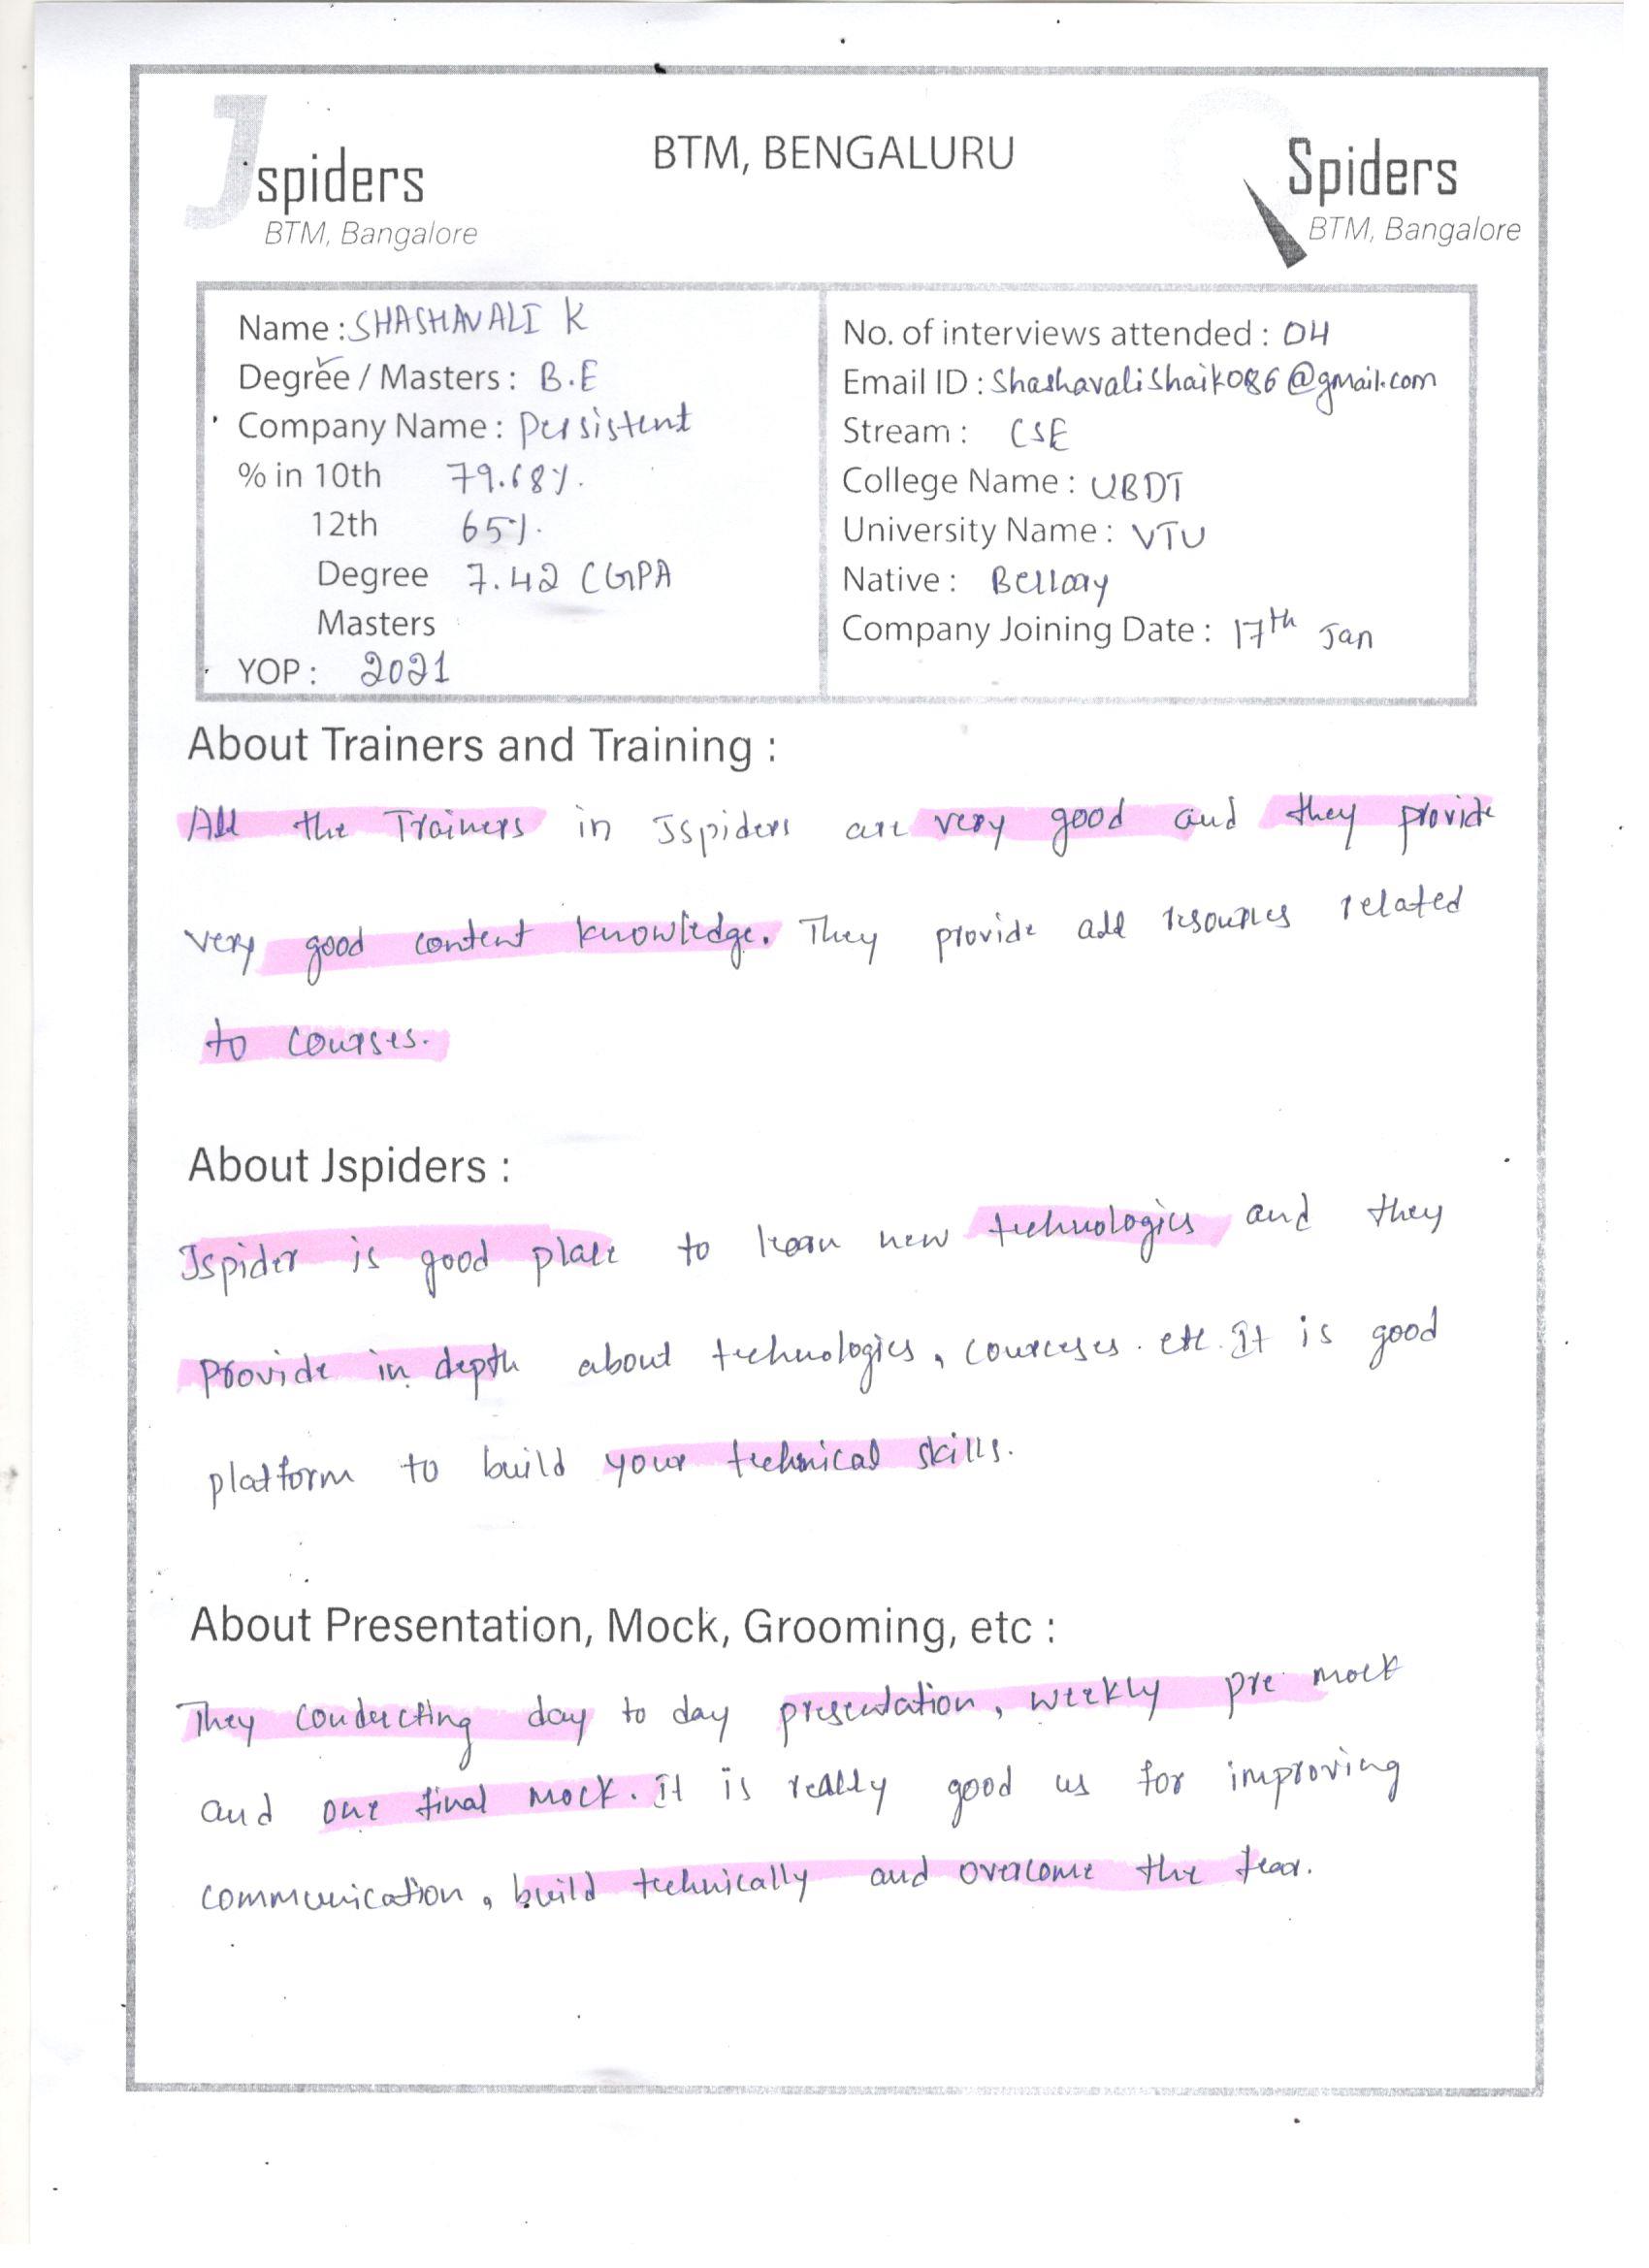 BTM, BENGALURU
Jspiders
BTM, Bangalore
QSpiders
BTM, Bangalore
Name : SHASHAVALI K
Degree / Masters : B.E
Company Name : Persistent
% in 10th 79.68%.
12th 65%.
Degree 7.42 CGPA
Masters
YOP : 2021
No. of interviews attended : 04
Email ID : Shashavalishaik086@gmail.com
Stream : CSE
College Name : UBDT
University Name : VTU
Native : Bellary
Company Joining Date : 17th Jan
About Trainers and Training :
All the Trainers in Jspiders are very good and they provide
very good content knowledge. They provide all resources related
to courses.
About Jspiders :
Jspider is good place to learn new technologies and they
provide in depth about technologies, courceses. etc. It is good
platform to build your technical skills.
About Presentation, Mock, Grooming, etc :
They conducting day to day presentation, weekly pre mock
and one final mock. It is really good us for improving
communication, build technically and overcome the fear.